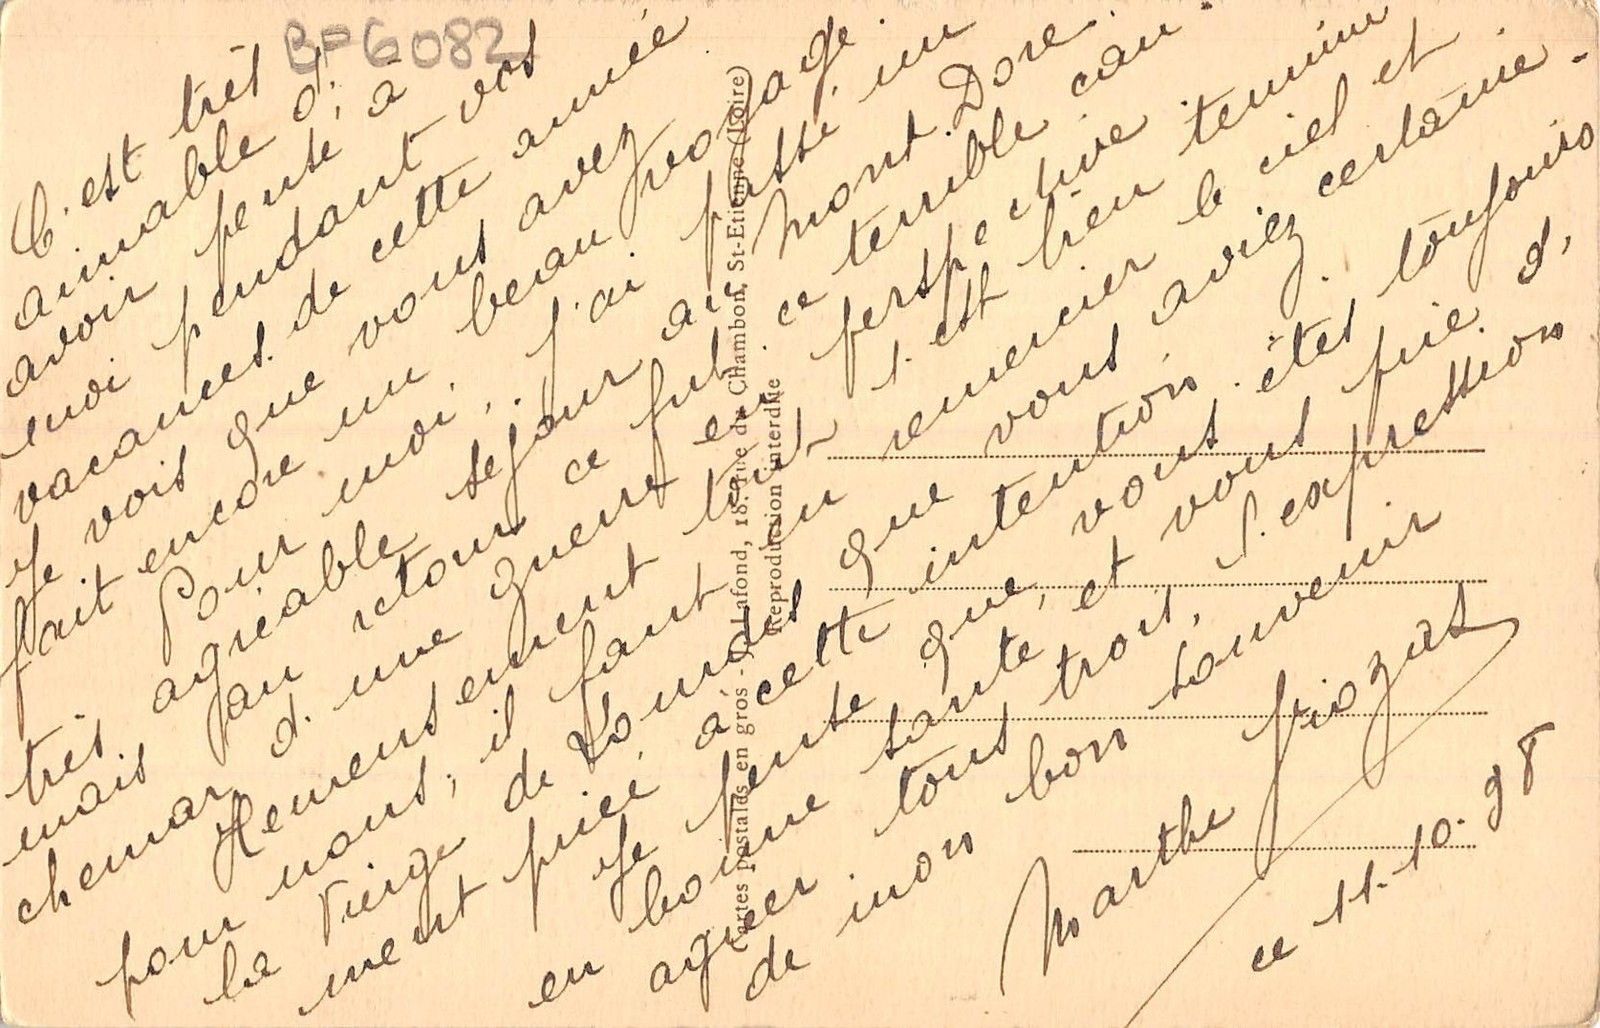 BFG082
C'est très
aimable d'
avoir pensé, à
moi pendant vos
vacances de cette année.
Je vois que vous avez
fait encore un beau voyage
Pour moi, j'ai passé un
très agréable séjour au Mont. Dore.
mais au retour ce fut ce terrible cau
chemar d'une guerre en perspective
Heureusement tout s'est bien terminé
pour nous; il faut en remercier le ciel et
la Vierge de Lourdes que vous aviez certaine-
ment priée à cette intention.
Je pense que, vous êtes toujours
en bonne santé, et vous prie d'
agréer tous trois, l'expression
de mon bon souvenir
Marthe
ce 11-10-38
Cartes postales en gros - J. Lafond, 18, rue du Chambon, St-Etienne (Loire)
Reproduction interdite